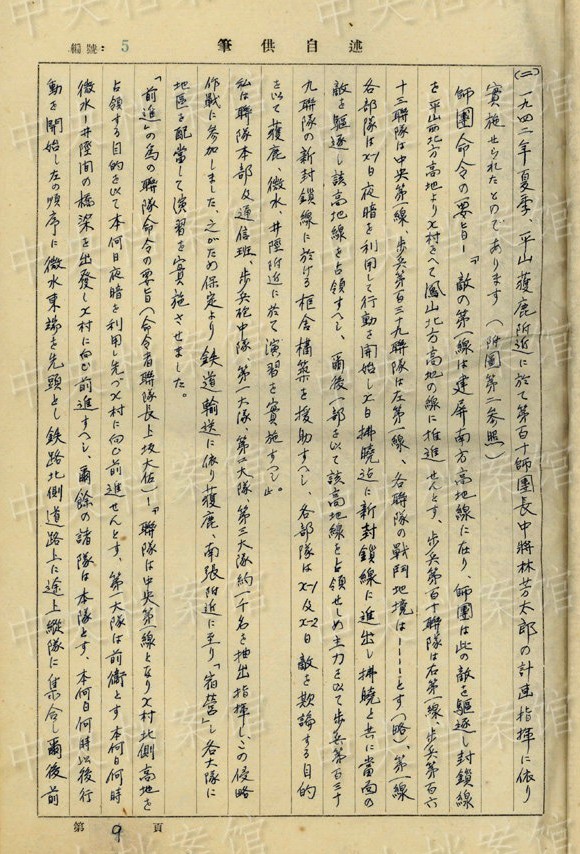 編號：5
筆供自述
(二)一九四二年夏季、平山獲鹿附近に於て第百十師團長中將林芳太郎の計画指揮に依り
實施せられたものであります(附圖第二参照)
師團命令の要旨－「敵の第一線は建屏南方高地線に在り、師團は此の敵を驅逐し封鎖線
を平山西北方高地よりX村を経て鳳山北方高地の線に推進せんとす、歩兵第百十聯隊は右第一線、歩兵第百六
十三聯隊は中央第一線、歩兵第百三十九聯隊は左第一線、各聯隊の戰鬥地境は－－－－とす(略)、第一線
各部隊はX-1日夜暗を利用して行動を開始しX日拂曉迄に新封鎖線に進出し拂曉と共に當面の
敵を驅逐し該高地線を占領すべし、爾後一部を以て該高地線を占領せしめ主力を以て歩兵第百三十
九聯隊の新封鎖線に於ける桓舎構築を援助すべし、各部隊はX-1及X-2日敵を欺諭する目的
を以て獲鹿、微水、井陘附近に於て演習を實施すべし」。
私は聯隊本部及通信班、歩兵砲中隊、第一大隊、第二大隊、第三大隊約一千名を抽出指揮し、この侵略
作戰に参加しました、之がため保定より鉄道輸送に依り獲鹿、南張附近に至り「宿営」し各大隊に
地區を配當して演習を實施させました。
「前進」の為の聯隊命令の要旨(命令者聯隊長上坂大佐)－「聯隊は中央第一線となりX村北側高地を
占領する目的を以て本何日夜暗を利用し先づX村に向ひ前進せんとす、第一大隊は前衛とす本何日何時
微水－井陘間の橋梁を出發しX村に向ひ前進すべし、爾餘の諸隊は本隊とす、本何日何時以後行
動を開始し左の順序に微水東端を先頭とし鉄路北側道路上に途上縦隊に集合し爾後前
第9頁